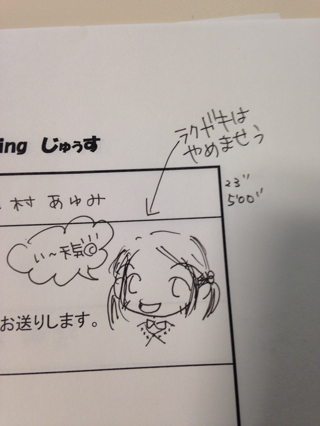 ing じゅうす
ラクガキは
やめませう
村 あゆみ
23"
5'00"
い〜天気
お送りします。